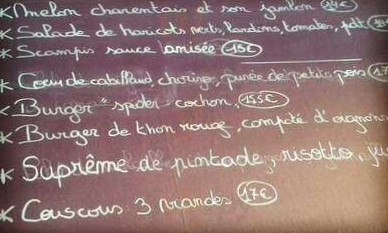 * Melon charentais et son jambon 14€
* Salade de haricots verts, lardons, tomates, pdt
* Scampis sauce lamisée 15€
* Coeur de cabillaud, chorizo, purée de petits pois
* Burger "spider cochon, 15,5€
* Burger de thon rouge, compoté d'oignons
* Suprême de pintade, risotto, jus
* Couscous 3 viandes 17€